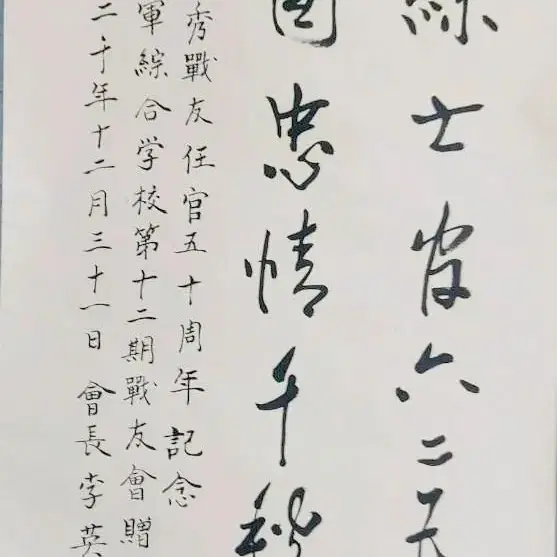 綜士官六二天
國忠情千秋
秀戰友任官五十周年記念
軍綜合学校第十二期戰友會贈
二十年十二月三十一日 會長李英